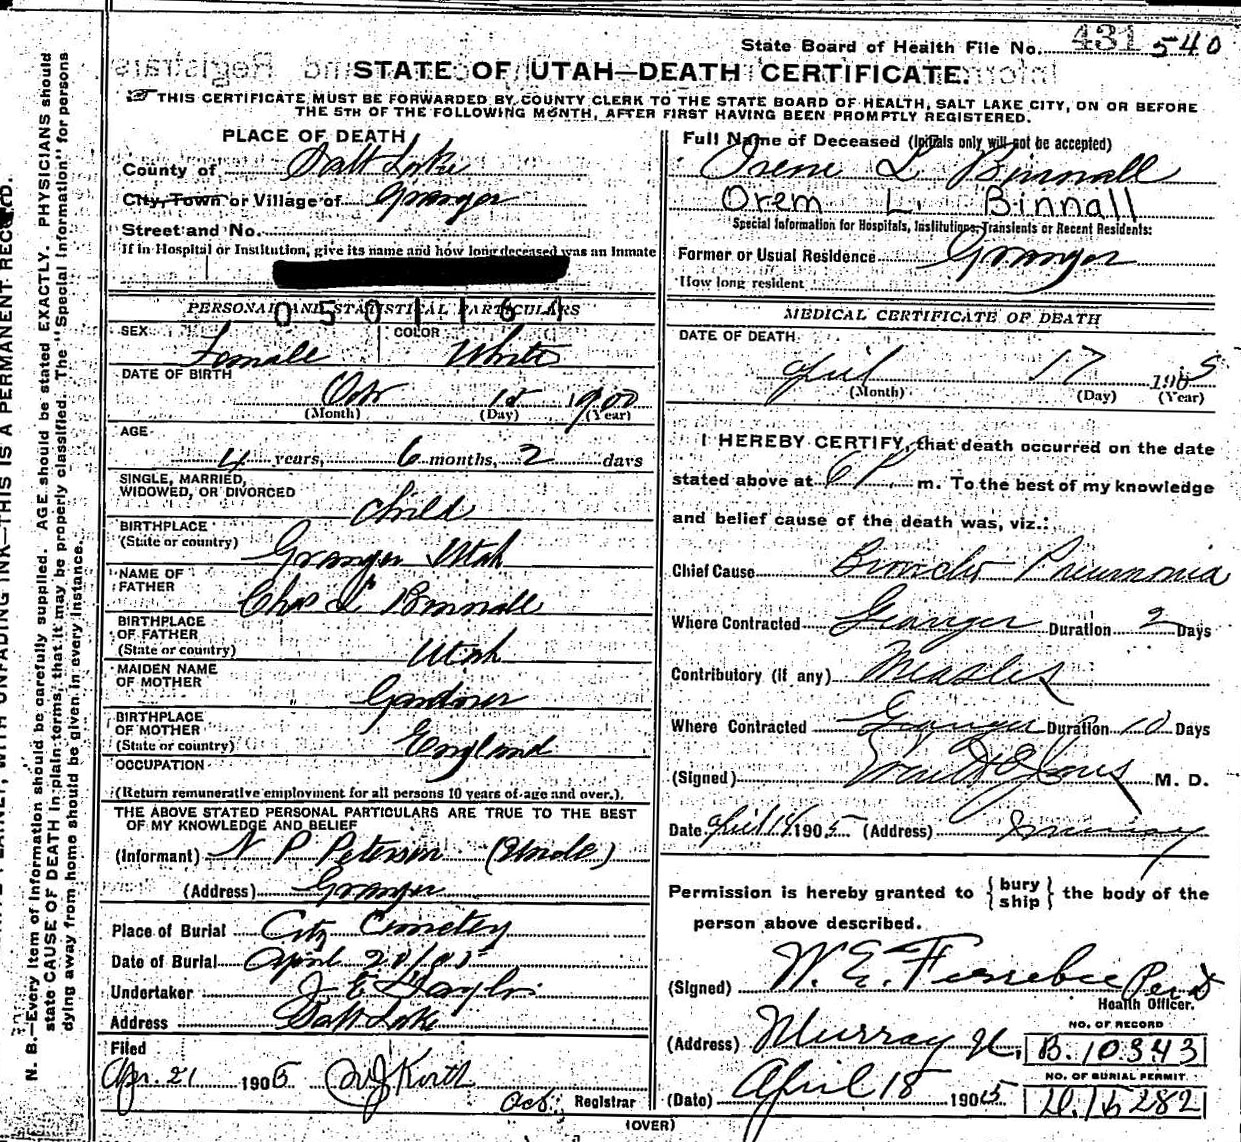 State Board of Health File No. 431 540
STATE OF UTAH—DEATH CERTIFICATE.
THIS CERTIFICATE MUST BE FORWARDED BY COUNTY CLERK TO THE STATE BOARD OF HEALTH, SALT LAKE CITY, ON OR BEFORE
THE 5TH OF THE FOLLOWING MONTH, AFTER FIRST HAVING BEEN PROMPTLY REGISTERED.
PLACE OF DEATH
County of Salt Lake
City, Town or Village of Granger
Street and No.
If in Hospital or Institution, give its name and how long deceased was an Inmate
PERSONAL AND STATISTICAL PARTICULARS
0501161
SEX Female COLOR White
DATE OF BIRTH
Oct 15 1900
(Month) (Day) (Year)
AGE
4 years, 6 months, 2 days
SINGLE, MARRIED,
WIDOWED, OR DIVORCED
child
BIRTHPLACE
(State or country) Granger Utah
NAME OF
FATHER Chas L Binnall
BIRTHPLACE
OF FATHER
(State or country) Utah
MAIDEN NAME
OF MOTHER Gardiner
BIRTHPLACE
OF MOTHER
(State or country) England
OCCUPATION
(Return remunerative employment for all persons 10 years of age and over.)
THE ABOVE STATED PERSONAL PARTICULARS ARE TRUE TO THE BEST
OF MY KNOWLEDGE AND BELIEF
(Informant) N P Peterson (Uncle)
(Address) Granger
Place of Burial City Cemetery
Date of Burial April 20/05
Undertaker J E Taylor
Address Salt Lake
Filed
Apr. 21 1905
Registrar
Full Name of Deceased (Initials only will not be accepted)
Irene L Binnall
Orem L. Binnall
Special Information for Hospitals, Institutions, Transients or Recent Residents:
Former or Usual Residence Granger
How long resident
MEDICAL CERTIFICATE OF DEATH
DATE OF DEATH
April 17 1905
(Month) (Day) (Year)
I HEREBY CERTIFY, that death occurred on the date
stated above at 6 P. m. To the best of my knowledge
and belief cause of the death was, viz.:
Chief Cause Broncho Pneumonia
Where Contracted Granger Duration 2 Days
Contributory (if any) Measles
Where Contracted Granger Duration 10 Days
(Signed) M. D.
Date April 1905 (Address) Murray
Permission is hereby granted to { bury
ship } the body of the
person above described.
(Signed) W. E. Ferrebee
Health Officer.
(Address) Murray
(Date) April 18 1905
NO. OF RECORD
B. 10343
NO. OF BURIAL PERMIT
282
(OVER)
N. B.—Every item of information should be carefully supplied. AGE should be stated EXACTLY. PHYSICIANS should
state CAUSE OF DEATH in plain terms, that it may be properly classified. The "Special Information" for persons
dying away from home should be given in every instance.
WITH UNFADING INK—THIS IS A PERMANENT RECORD.